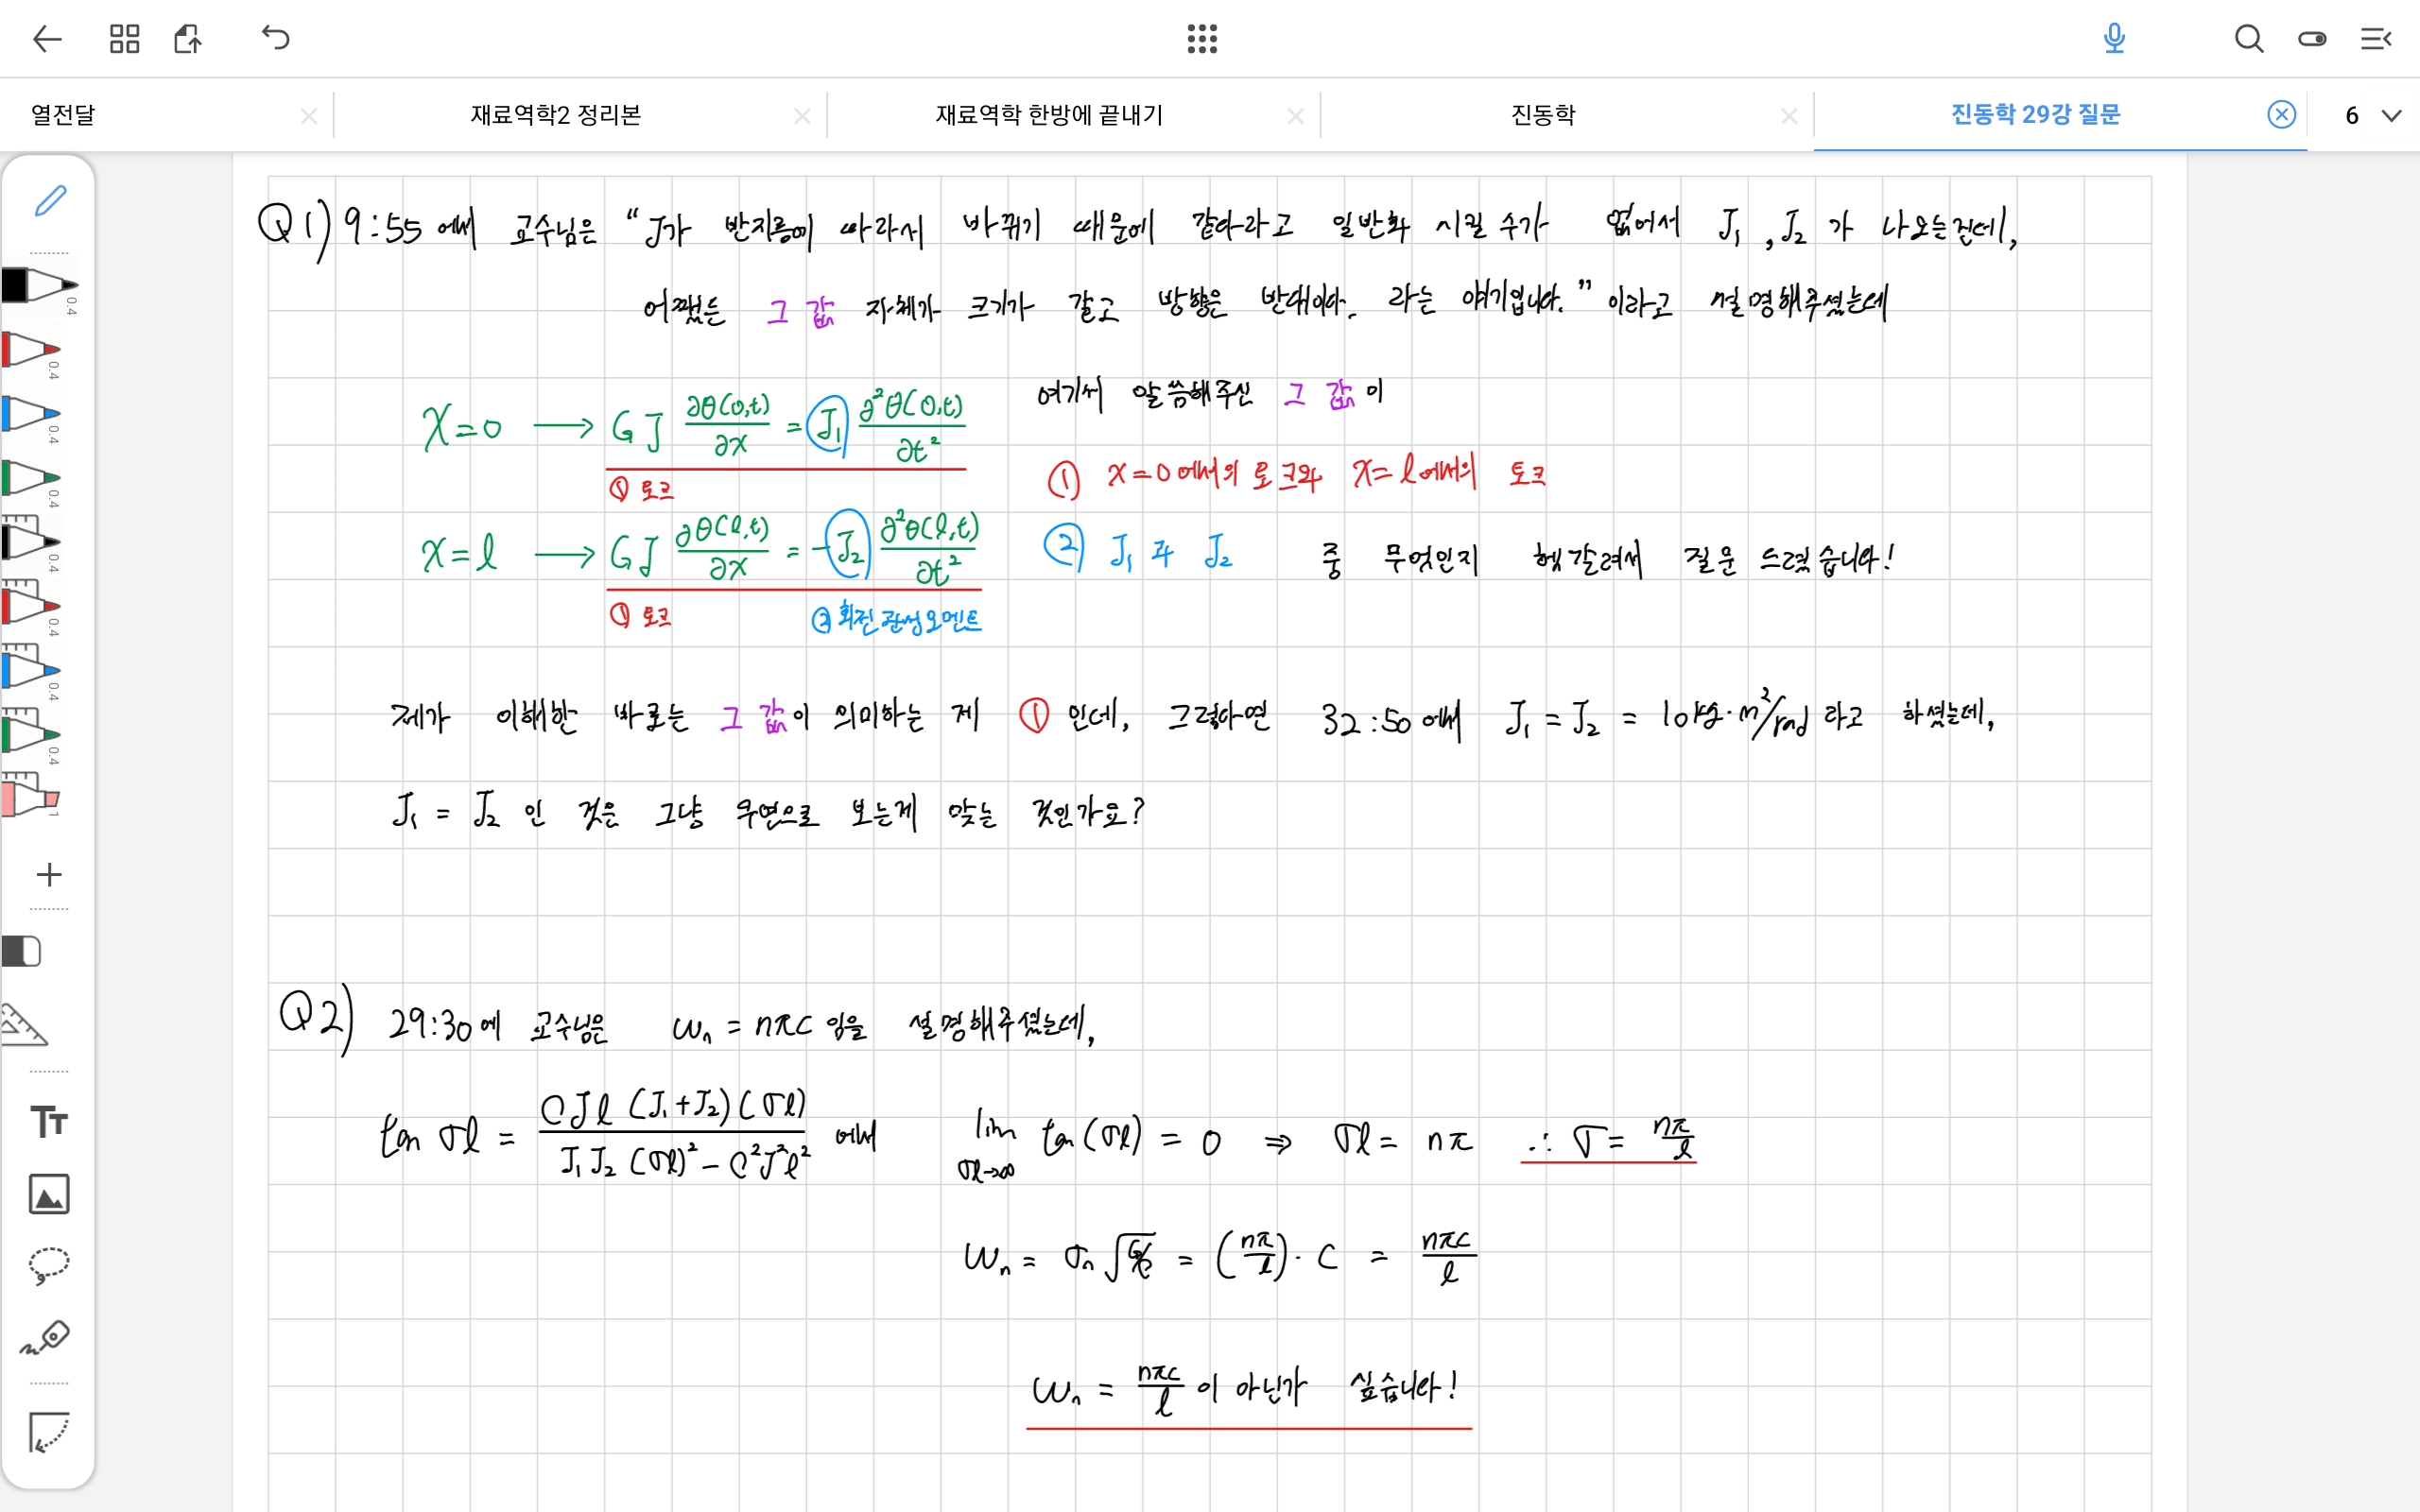 열전달
재료역학2 정리본
재료역학 한방에 끝내기
진동학
진동학 29강 질문
6
Q1) 9:55 에서 교수님은 "J가 반지름에 따라서 바뀌기 때문에 같다라고 일반화 시킬 수가 없어서 J₁, J₂ 가 나오는건데,
어쨌든 그 값 자체가 크기가 같고 방향은 반대이다. 라는 얘기입니다." 이라고 설명해주셨는데
여기서 말씀해주신 그 값이
x=0 → GJ ∂θ(0,t)/∂x = J₁ ∂²θ(0,t)/∂t²
① 토크
① x=0에서의 토크와 x=l에서의 토크
x=l → GJ ∂θ(l,t)/∂x = -J₂ ∂²θ(l,t)/∂t²
① 토크 ② 회전관성모멘트
② J₁ 과 J₂ 중 무엇인지 헷갈려서 질문 드렸습니다!
제가 이해한 바로는 그 값이 의미하는 게 ① 인데, 그렇다면 32:50에서 J₁ = J₂ = 10kg·m²/rad 라고 하셨는데,
J₁ = J₂ 인 것은 그냥 우연으로 보는게 맞는 것인가요?
Q2) 29:30에 교수님은 ωₙ = nπc 임을 설명해주셨는데,
tan σl = ρJl (J₁+J₂)(σl) / J₁J₂(σl)² - ρ²J²l² 에서 lim σl→∞ tan(σl) = 0 ⇒ σl = nπ ∴ σ = nπ/l
ωₙ = σₙ√(G/ρ) = (nπ/l)·c = nπc/l
ωₙ = nπc/l 이 아닌가 싶습니다!
0.4
0.4
0.4
0.4
0.4
0.4
0.4
0.4
1
Tт